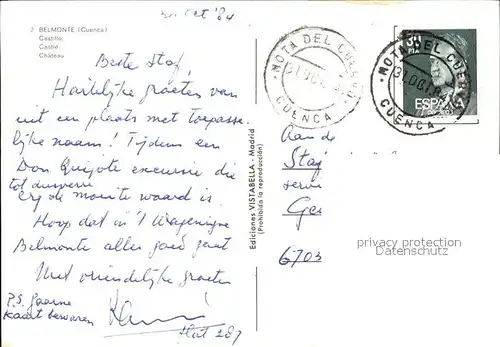 okt '84
2 BELMONTE (Cuenca)
Castillo.
Castle.
Château.
Beste Staf
Hartelijke groeten van
uit een plaats met toepasse-
lijke naam! Tijdens een
Don Quijote excursie die
tot dusverre
erg de moeite waard is.
Hoop dat in 't Wageningse
Belmonte alles goed gaat
Met vriendelijke groeten
P.S. gaarne
kaart bewaren
flat 287
Ediciones VISTABELLA - Madrid
(Prohibida la reproducción)
MOTA DEL CUERVO
31 OCT
CUENCA
ESPAÑA
MOTA DEL CUERVO
31 OCT
CUENCA
Aan de
Staf
Ge
6703
privacy protection
Datenschutz